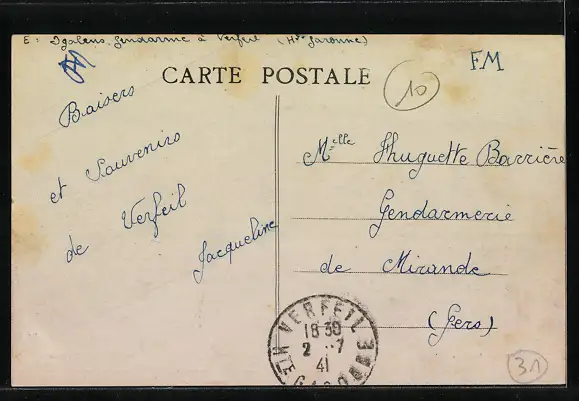 E: Igalens, gendarme à Verfeil (Hte Garonne)
FM
CARTE POSTALE
10
Baisers
et Souvenirs
de Verfeil
Jacqueline
Melle Huguette Barrière
Gendarmerie
de Mirande
(Gers)
VERFEIL
18 30
2 - 7
41
HTE GARONNE
31